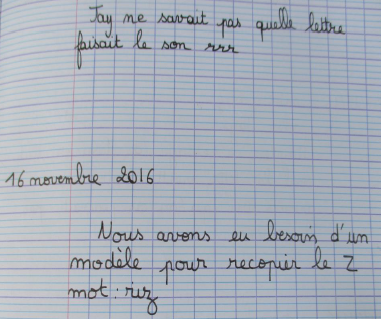 Jay ne savait pas quelle lettre
faisait le son rrr
16 novembre 2016
Nous avons eu besoin d'un
modèle pour recopier le 2
mot : riz